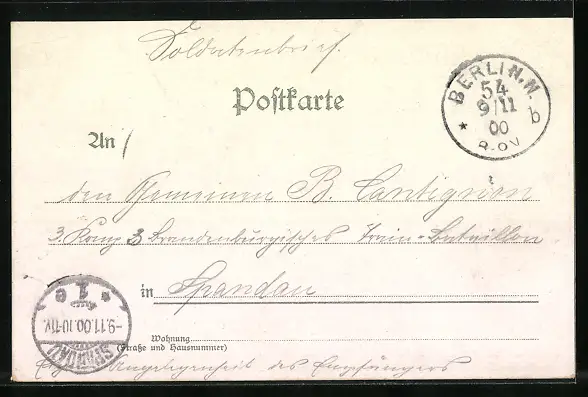 Soldatenbrief.
Postkarte
BERLIN.N.
54
9/11
00
8-9V
b
An
den Gemeinen B. Cantignon
3. Komp 3 Brandenburgisches Train-Bataillon
in Spandau
-9.11.00.10-11V.
1 e
SPANDAU
Wohnung
(Straße und Hausnummer)
Angelegenheit des Empfängers